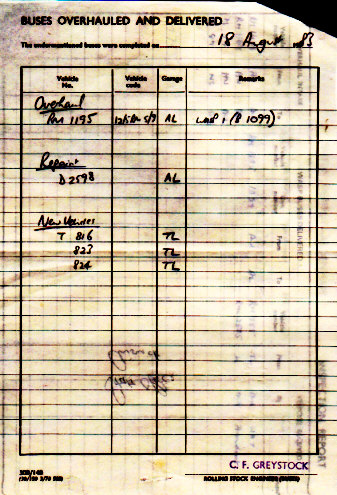 BUSES OVERHAULED AND DELIVERED
The undermentioned buses were completed on 18 August 1983
Vehicle No. Vehicle code Garage Remarks
Overhaul
RM 1195 5/9 AL (B 1099)
Repaint
D2598 AL
New Vehicles
T 816 TL
823 TL
824 TL
C. F. GREYSTOCK
ROLLING STOCK ENGINEER (BUSES)